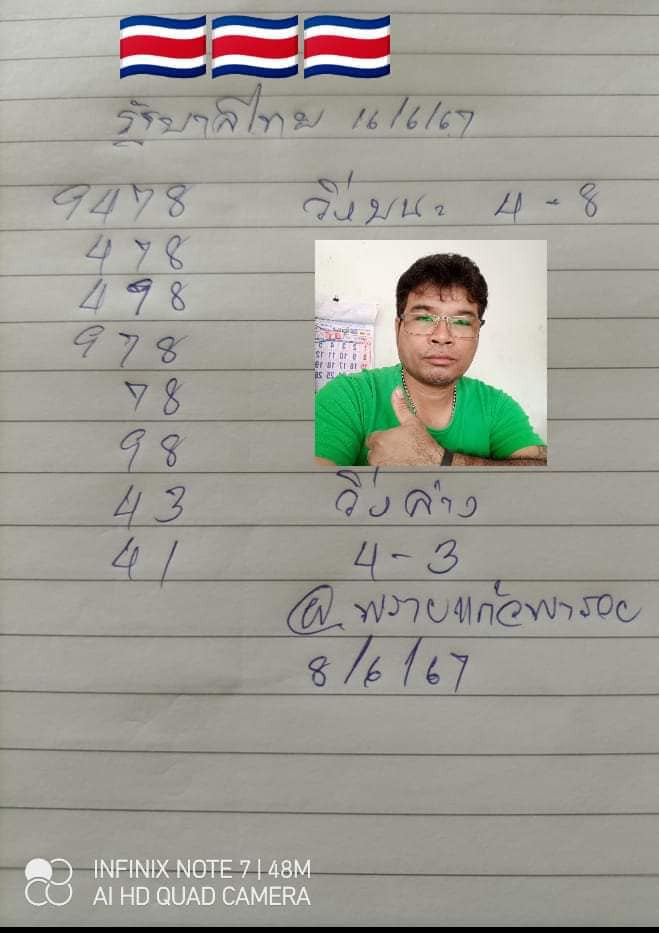 รัฐบาลไทย 16/6/67
9478
วิ่งบน: 4-8
478
498
978
78
98
43
วิ่งล่าง
41
4-3
@พรายแก้วพารวย
8/6/67
INFINIX NOTE 7 | 48M
AI HD QUAD CAMERA